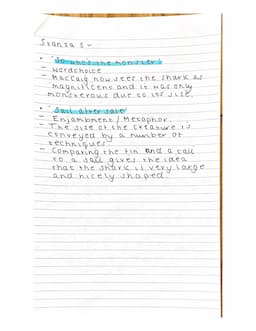 Stanza 5 -
• "So who's the monster?"
- Wordchoice
- MacCaig now sees the shark as
magnificent and it was only
monsterous due to its size.
• "Sail after sail"
- Enjambment / Metaphor.
- The size of the creature is
conveyed by a number of
techniques.
- Comparing the fin and a tail
to a sail gives the idea
that the shark is very large
and nicely shaped.